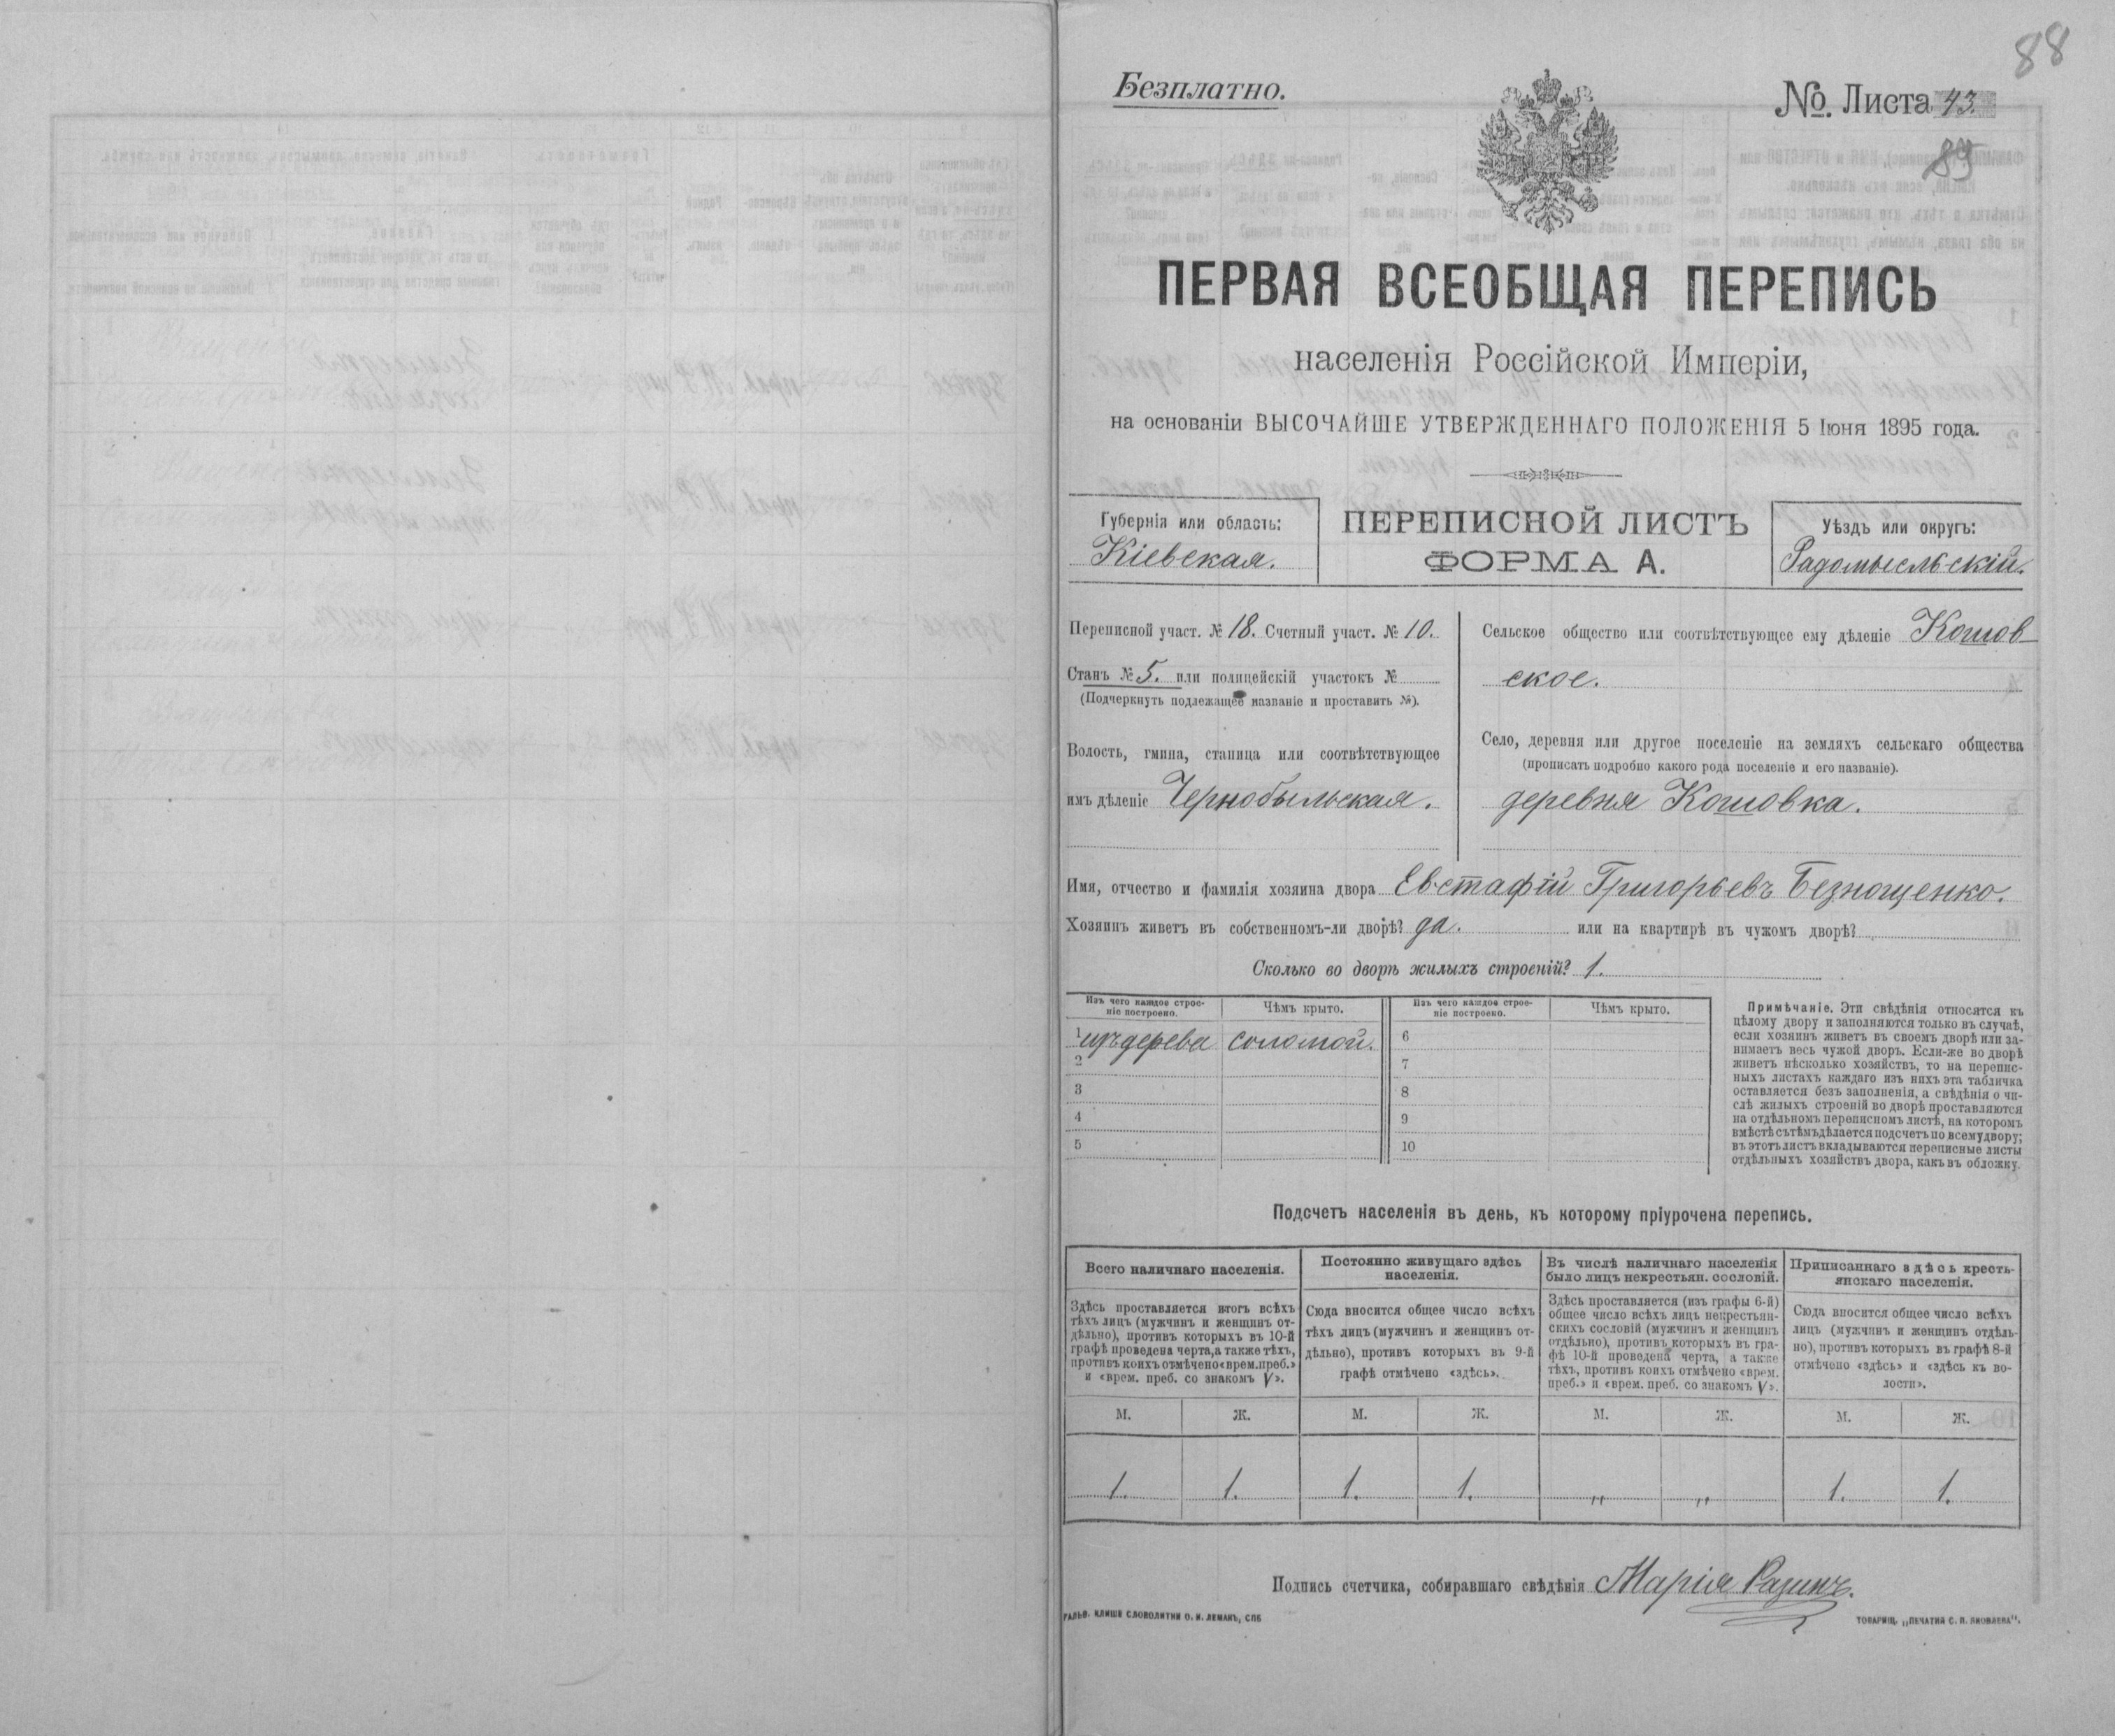 88
Безплатно.
№. Листа 43.
89
ПЕРВАЯ ВСЕОБЩАЯ ПЕРЕПИСЬ
населенія Россійской Имперіи,
на основаніи ВЫСОЧАЙШЕ УТВЕРЖДЕННАГО ПОЛОЖЕНІЯ 5 Іюня 1895 года.
Губернія или область:
Кіевская.
ПЕРЕПИСНОЙ ЛИСТЪ
ФОРМА А.
Уѣздъ или округъ:
Радомысльскій.
Переписной участ. № 18. Счетный участ. № 10.
Станъ № 5. или полицейскій участокъ №
(Подчеркнуть подлежащее названіе и проставить №).
Волость, гмина, станица или соотвѣтствующее
имъ дѣленіе Чернобыльская.
Сельское общество или соотвѣтствующее ему дѣленіе Кошов-
ское.
Село, деревня или другое поселеніе на земляхъ сельскаго общества
(прописать подробно какого рода поселеніе и его названіе).
деревня Кошовка.
Имя, отчество и фамилія хозяина двора Евстафій Григорьевъ Безнощенко.
Хозяинъ живетъ въ собственномъ-ли дворѣ? да. или на квартирѣ въ чужомъ дворѣ?
Сколько во дворѣ жилыхъ строеній? 1.
Изъ чего каждое строе-
ніе построено.
Чѣмъ крыто.
Изъ чего каждое строе-
ніе построено.
Чѣмъ крыто.
1 изъ дерева соломой. 6
2 7
3 8
4 9
5 10
Примѣчаніе. Эти свѣдѣнія относятся къ
цѣлому двору и заполняются только въ случаѣ,
если хозяинъ живетъ въ своемъ дворѣ или за-
нимаетъ весь чужой дворъ. Если-же во дворѣ
живетъ нѣсколько хозяйствъ, то на перепис-
ныхъ листахъ каждаго изъ нихъ эта табличка
оставляется безъ заполненія, а свѣдѣнія о чи-
слѣ жилыхъ строеній во дворѣ проставляются
на отдѣльномъ переписномъ листѣ, на которомъ
вмѣстѣ съ тѣмъ дѣлается подсчетъ по всему двору;
въ этотъ листъ вкладываются переписные листы
отдѣльныхъ хозяйствъ двора, какъ въ обложку.
Подсчетъ населенія въ день, къ которому пріурочена перепись.
Всего наличнаго населенія.
Постоянно живущаго здѣсь
населенія.
Въ числѣ наличнаго населенія
было лицъ некрестьян. сословій.
Приписаннаго здѣсь кресть-
янскаго населенія.
Здѣсь проставляется итогъ всѣхъ
тѣхъ лицъ (мужчинъ и женщинъ от-
дѣльно), противъ которыхъ въ 10-й
графѣ проведена черта, а также тѣхъ,
противъ коихъ отмѣчено «врем. преб.»
и «врем. преб. со знакомъ V».
Сюда вносится общее число всѣхъ
тѣхъ лицъ (мужчинъ и женщинъ от-
дѣльно), противъ которыхъ въ 9-й
графѣ отмѣчено «здѣсь».
Здѣсь проставляется (изъ графы 6-й)
общее число всѣхъ лицъ некрестьян-
скихъ сословій (мужчинъ и женщинъ
отдѣльно), противъ которыхъ въ гра-
фѣ 10-й проведена черта, а также
тѣхъ, противъ коихъ отмѣчено «врем.
преб.» и «врем. преб. со знакомъ V».
Сюда вносится общее число всѣхъ
лицъ (мужчинъ и женщинъ отдѣль-
но), противъ которыхъ въ графѣ 8-й
отмѣчено «здѣсь» и «здѣсь къ во-
лости».
М. Ж. М. Ж. М. Ж. М. Ж.
1. 1. 1. 1. „ „ 1. 1.
Подпись счетчика, собиравшаго свѣдѣнія Марія
ГАЛЬВ. КЛИШЕ СЛОВОЛИТНИ О. И. ЛЕМАНЪ, СПБ
ТОВАРИЩ. „ПЕЧАТНЯ С. П. ЯКОВЛЕВА".